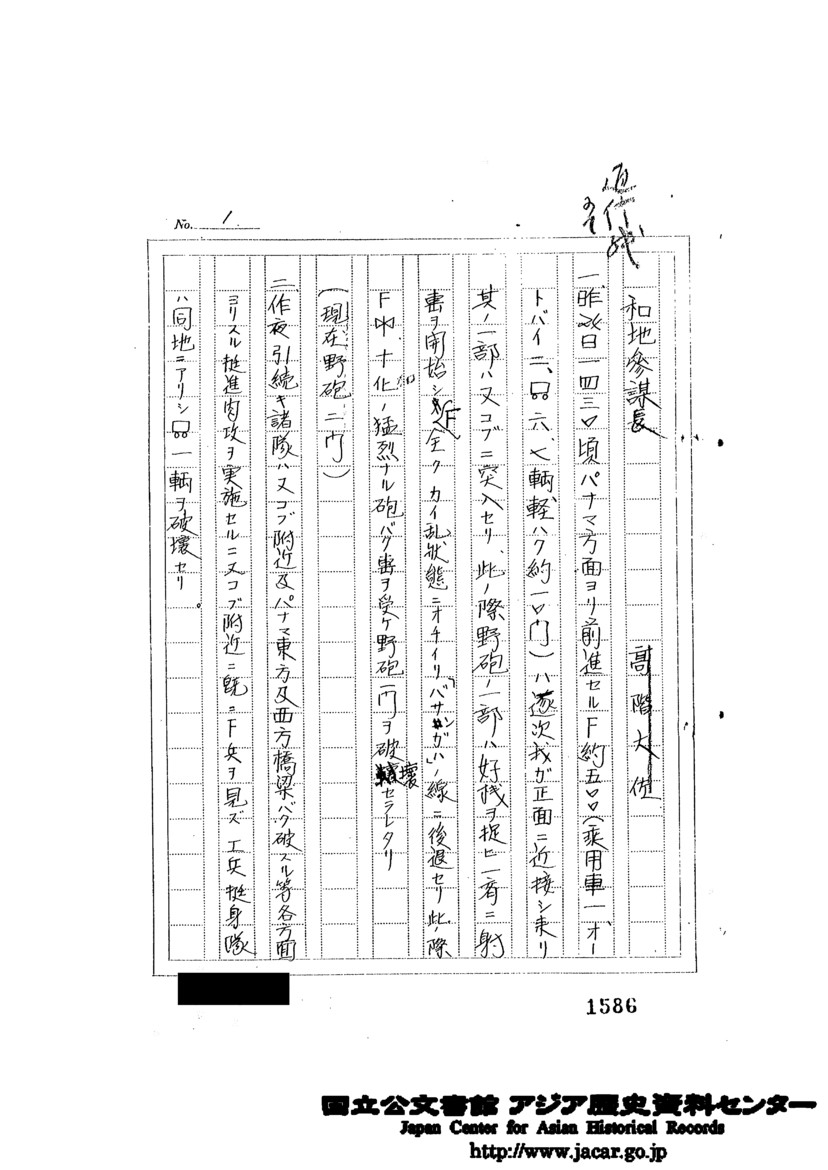 No. 1
和地參謀長
髙階大佐
一、昨26日一四三〇頃パナマ方面ヨリ前進セルF約五〇〇(乗用車一、オー
トバイ二、六、七輌、軽ハク約一〇門)ハ遂次我ガ正面ニ近接シ来リ
其ノ一部ハ又コブニ突入セリ、此ノ際野砲ノ一部ハ好機ヲ捉ヒ一斉ニ射
撃ヲ開始シF全ク カイ乱状態ニオチイリ「バサンガハ」ノ線ニ後退セリ此ノ際
F中、十化ノ猛烈ナル砲バク撃ヲ受ケ野砲一門ヲ破壞セラレタリ
(現在野砲二門)
二、作夜引続キ諸隊ハ又コブ附近及パナマ東方及西方橋梁バク破スル等各方面
ヨリスル挺進肉攻ヲ実施セルニ又コブ附近ニ既ニF兵ヲ見ズ 工兵挺身隊
ハ同地ニアリシ一輌ヲ破壞セリ。
1586
国立公文書館 アジア歴史資料センター
Japan Center for Asian Historical Records
http://www.jacar.go.jp